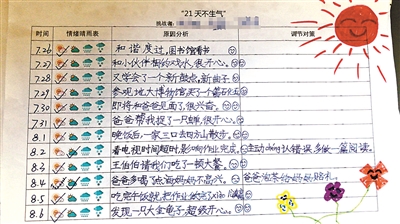 "21天不生气"
挑战者:
时间 情绪晴雨表 原因分析 调节对策
7.26 和谐度过,图书馆看书
7.27 和小伙伴相约戏水,很开心。
7.28 又学会了一个新
7.29 参观地大博物馆,买了个
7.30 即将和爸爸见面了很兴奋。
7.31 爸爸帮我捉了一只蝉,很开心。
8.1 晚饭后,一家三口去南山散步。
8.2 看电视时间超时,影响作业完成。 主动dǎng认错误,多做一篇阅读。
8.3 王伯伯请我们吃了一顿大餐。
8.4 爸爸多喝了点酒,妈妈不高兴。 爸爸泡茶给妈妈赔礼。
8.5 吃完午饭就把作业做完了
8.6 发现一只大金龟子,超级开心。